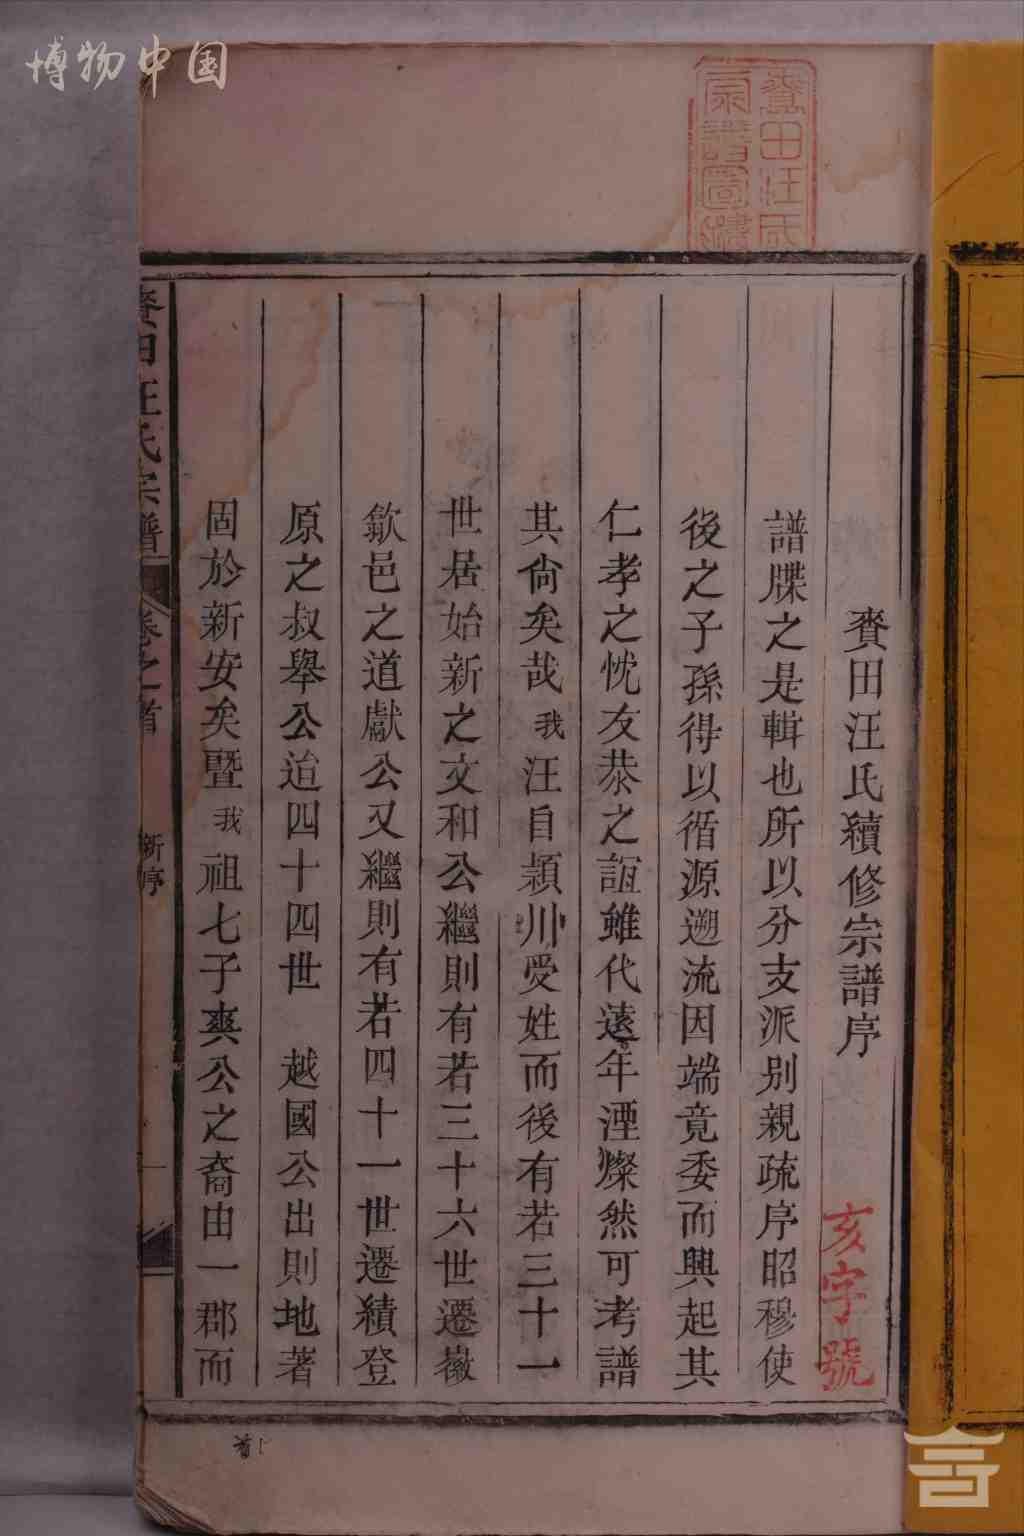 博物中国
賚田汪氏
宗譜圖
賚田汪氏續修宗譜序
亥字號
譜牒之是輯也所以分支派别親疏序昭穆使
後之子孫得以循源遡流因端竟委而興起其
仁孝之忱友恭之誼雖代遠年湮燦然可考譜
其尙矣哉我汪自頴川受姓而後有若三十一
世居始新之文和公繼則有若三十六世遷徽
歙邑之道獻公又繼則有若四十一世遷績登
原之叔舉公迨四十四世 越國公出則地著
固於新安矣暨我祖七子爽公之裔由一郡而
賚田汪氏宗譜
卷之首
新序
一